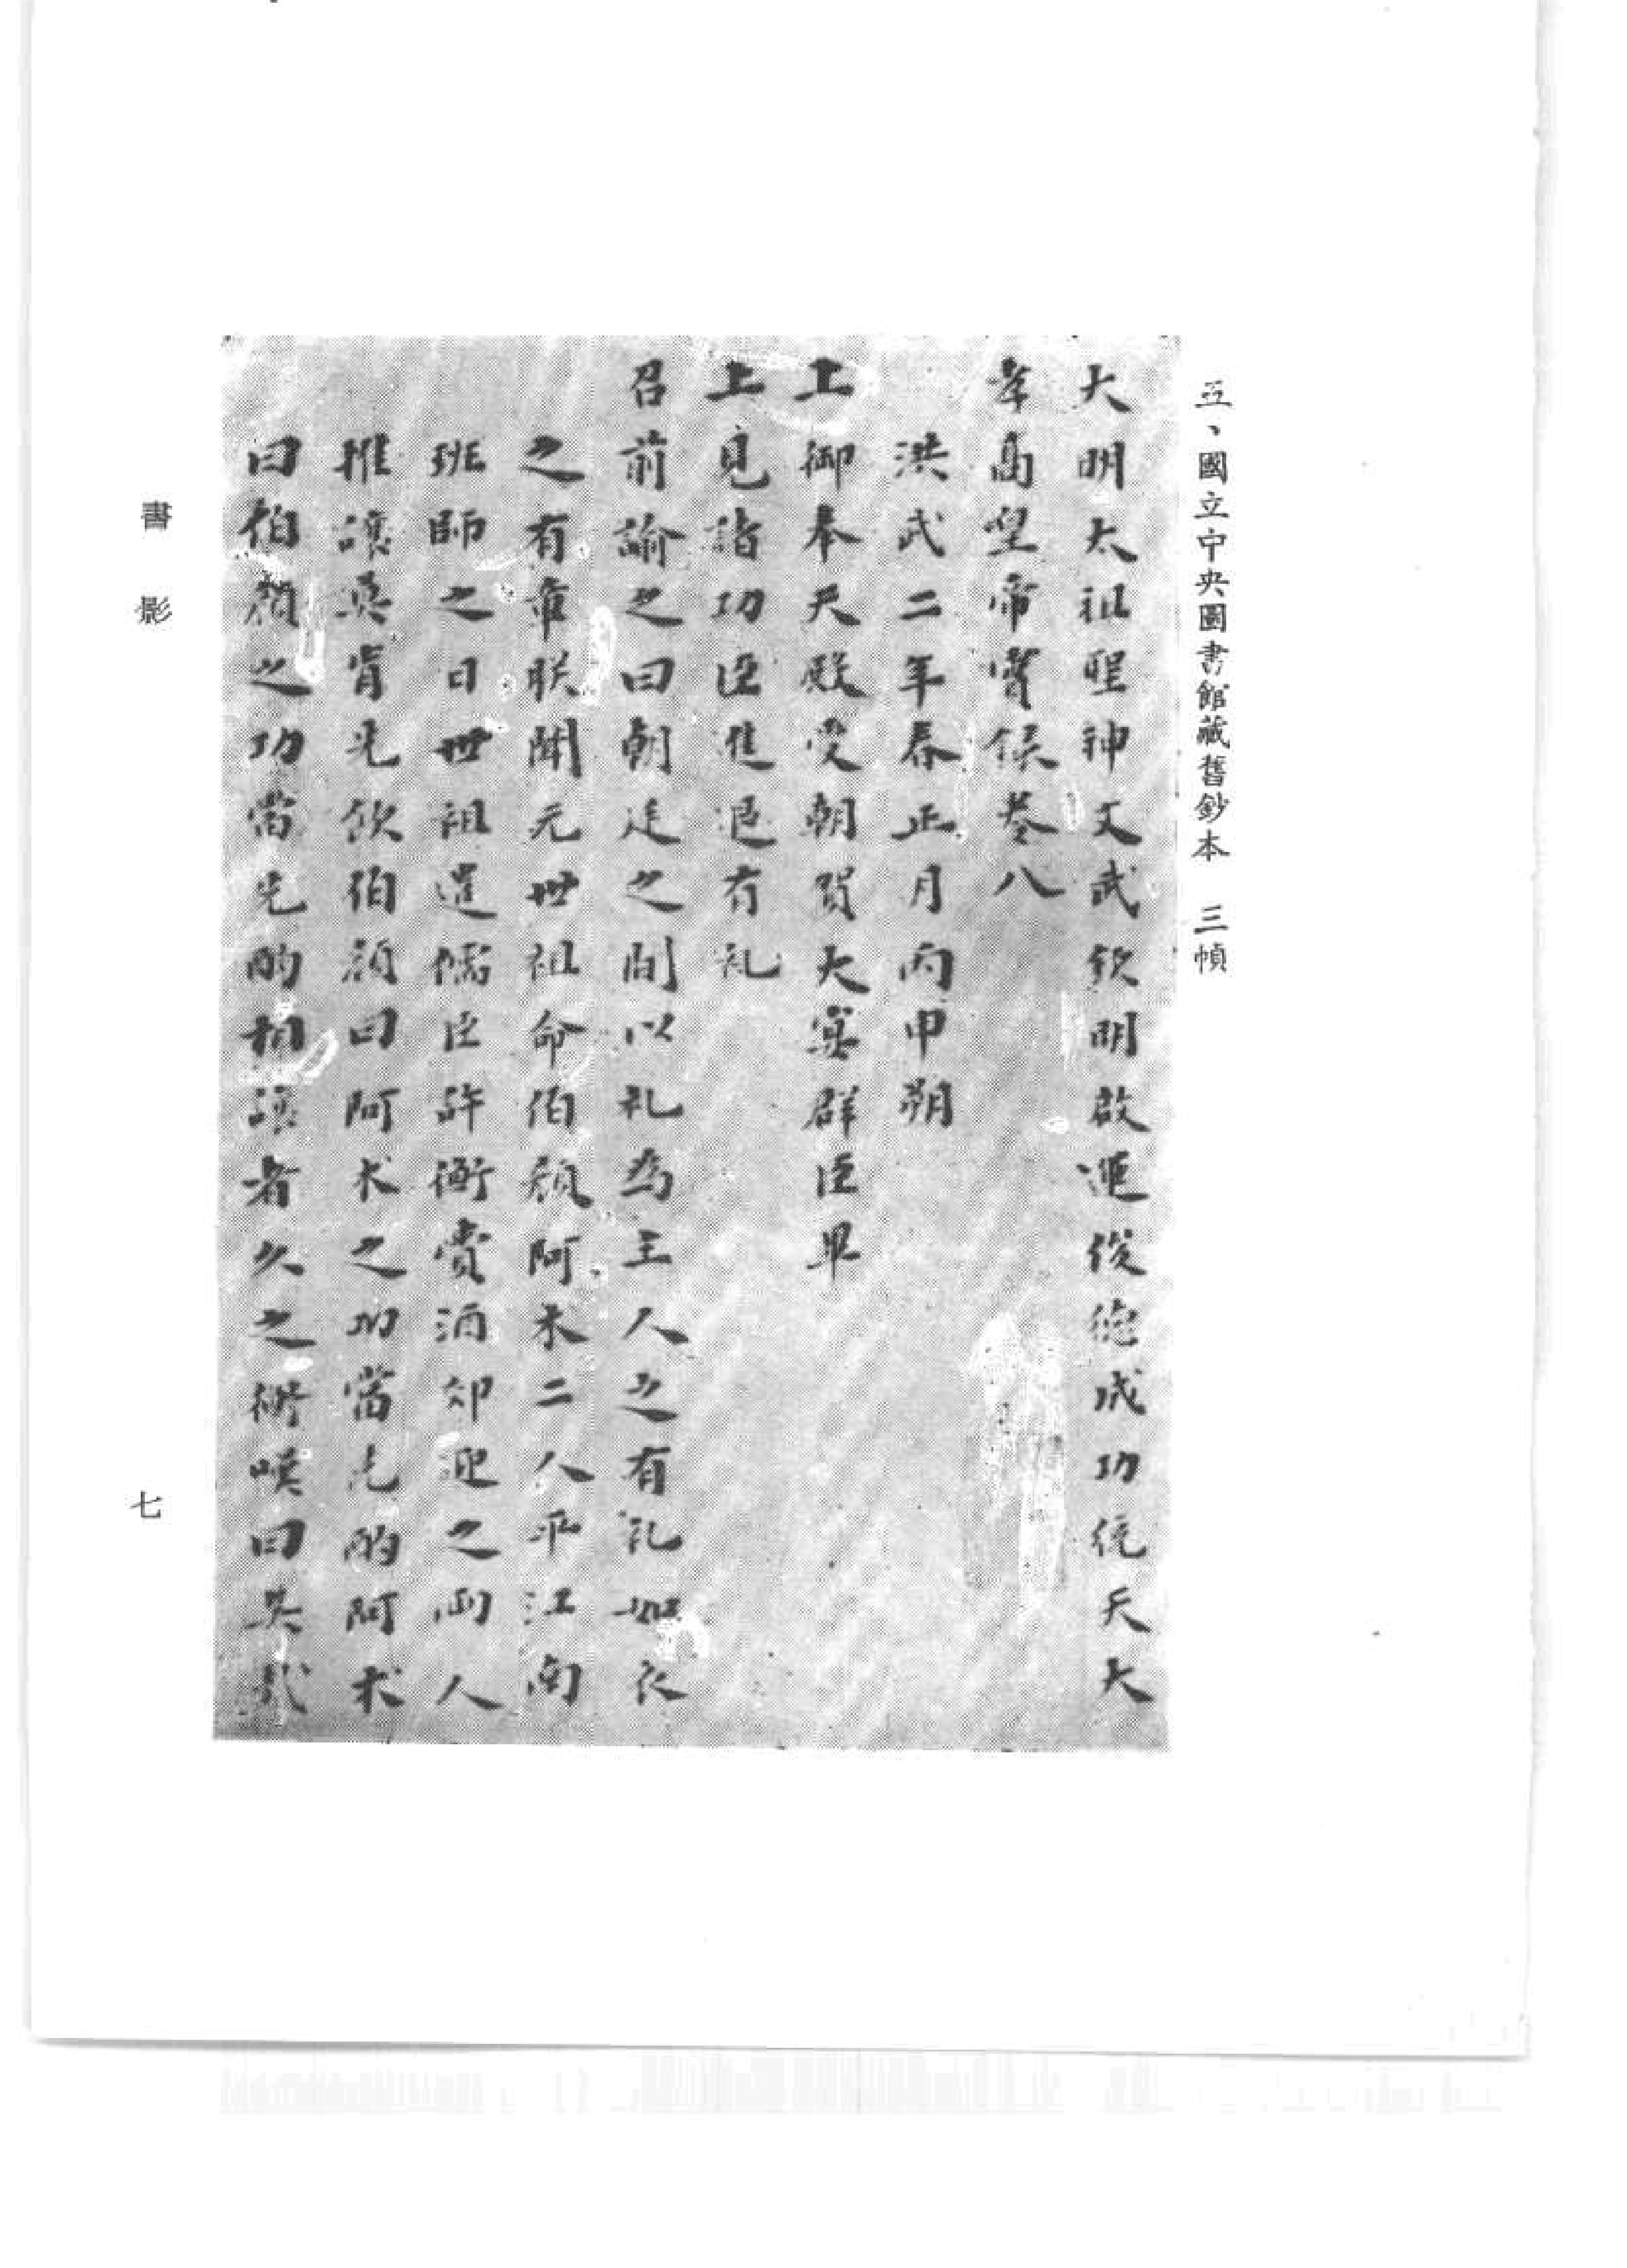 五、國立中央圖書館藏舊鈔本 三幀
大明太祖聖神文武欽明啟運俊德成功統天大
孝高皇帝寶錄卷八
洪武二年春正月丙申朔
上御奉天殿受朝賀大宴群臣畢
上見諸功臣進退有礼
召前諭之曰朝廷之間以礼為主人之有礼如衣
之有章朕聞元世祖命伯顏阿术二人平江南
班師之日世祖遣儒臣許衡賫酒郊迎之両人
推讓莫肯先飲伯顏曰阿术之功當先酌阿术
曰伯顏之功當先酌相讓者久之衡嘆曰美哉
書影
七